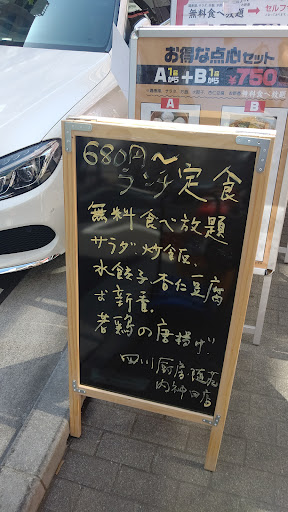 無料食べ放題 → セルフ
お得な点心セット
A 1品から + B 1品から ¥750
A
B
680円〜
ランチ定食
無料食べ放題
サラダ.炒飯.
水餃子.杏仁豆腐
お新香.
若鶏の唐揚げ
四川厨房.随苑
内神田店